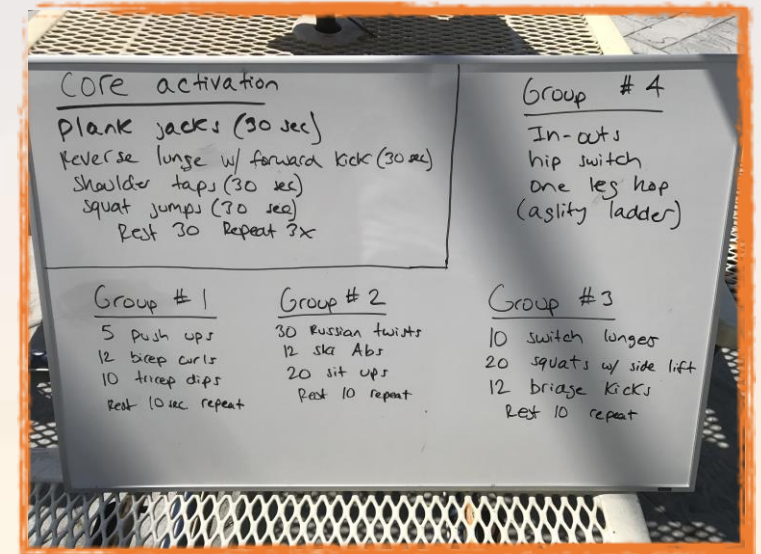 Core activation
Plank jacks (30 sec)
Reverse lunge w/ forward kick (30 sec)
Shoulder taps (30 sec)
squat jumps (30 sec)
Rest 30 Repeat 3x
Group # 4
In-outs
hip switch
one leg hop
(aglity ladder)
Group # 1
5 push ups
12 bicep curls
10 tricep dips
Rest 10 sec repeat
Group # 2
30 Russian twists
12 ski Abs
20 sit ups
Rest 10 repeat
Group # 3
10 switch lunges
20 squats w/ side lift
12 bridge kicks
Rest 10 repeat